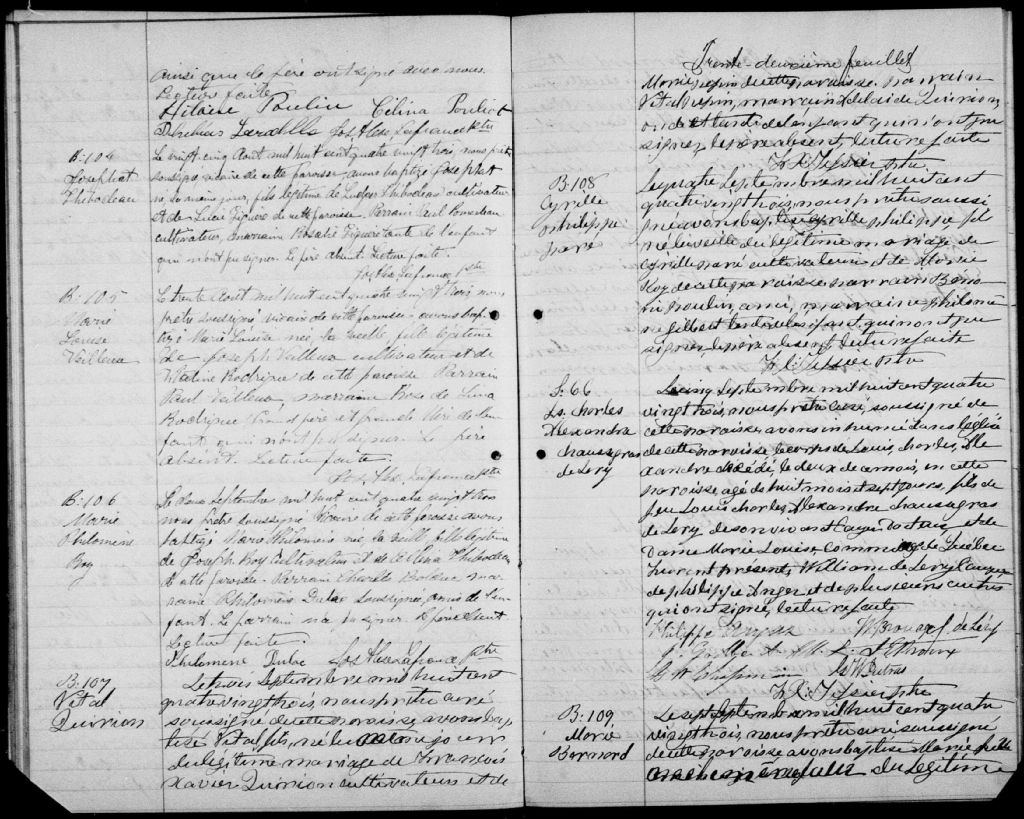 ainsi que le père ont signé avec nous.
Lecture faite
Hilaire Poulin Célina Pouliot
Jos Alex Lafrance Ptre
B: 104
Josephat
Thibodeau
Le vingt cinq Aout mil huit cent quatre vingt trois, nous prêtre
soussigné vicaire de cette paroisse avons baptisé Josephat
né le même jour, fils légitime de Thibodeau cultivateur
et de Luci Figure de cette paroisse. Parrain Paul Pomerleau
cultivateur, marraine Rosalie Figure tante de l'enfant
qui n'ont pu signer. Le père absent. Lecture faite.
Jos Alex Lafrance Ptre
B: 105
Marie
Louise
Veilleux
Le trente Aout mil huit cent quatre vingt trois, nous
prêtre soussigné vicaire de cette paroisse avons bap
tisé Marie Louise née la veille, fille légitime
de Joseph Veilleux cultivateur et de
Rodrigue de cette paroisse Parrain
Paul Veilleux, marraine Rose de Lima
Rodrigue Grand père et grande mère de l'en
fant qui n'ont pu signer. Le père
absent. Lecture faite.
Jos Alex Lafrance Ptre
B: 106
Marie
Philomène
Roy
Le deux Septembre mil huit cent quatre vingt trois
nous prêtre soussigné Vicaire de cette paroisse avons
baptisé Marie Philomène née la veille, fille légitime
de Joseph Roy Cultivateur et de Thibodeau
de cette paroisse. Parrain Bolduc mar
raine Philomène Dulac soussignée, amis de l'en
fant. Le parrain n'a pu signer. Le père absent.
Lecture faite.
Philomène Dulac Jos Alex Lafrance Ptre
B: 107
Vital
Quirion
Le trois Septembre mil huit cent
quatre vingt trois, nous prêtre curé
soussigné de cette paroisse, avons bap
tisé Vital, fils, né le jour
du légitime mariage de François
Xavier Quirion cultivateur et de
Trente-deuxième feuillet
Marie Pepin de cette paroisse. parrain
Vital Pepin, marraine Adelaide Quirion,
oncle et tante de l'enfant qui n'ont pu
signer, le père absent, lecture faite
Ptre
B: 108
Cyrille
philippe
paré
Le quatre Septembre mil huit cent
quatre vingt trois, nous prêtre soussi
gné avons baptisé Cyrille philippe, fils
né la veille du légitime mariage de
Cyrille paré cultivateur et de Marie
Roy de cette paroisse parrain Beno
ni poulin, ami, marraine philomè
ne Gilbert tante de l'enfant, qui n'ont pu
signer, le père absent, lecture faite
ptre
S: 66
Ls. Charles
Alexandre
Chaussegros
de Lery
Le cinq Septembre mil huit cent quatre
vingt trois, nous prêtre curé, soussigné de
cette paroisse, avons inhumé dans l'église
de cette paroisse le corps de Louis, Charles, Ale
xandre décédé, le deux de ce mois, en cette
paroisse, agé de huit mois et sept jours, fils de
feu Louis Charles Alexandre Chaussegros
de Lery de son vivant et de
Dame Marie Louise de Québec
furent présents, William de Lery
de philippe Angers et de plusieurs autres
qui ont signé, lecture faite
Philippe Angers de Léry
ptre
B: 109.
Marie
Bernard
Le sept Septembre mil huit cent quatre
vingt trois, nous prêtre curé soussigné
de cette paroisse, avons baptisé Marie fille
du légitime